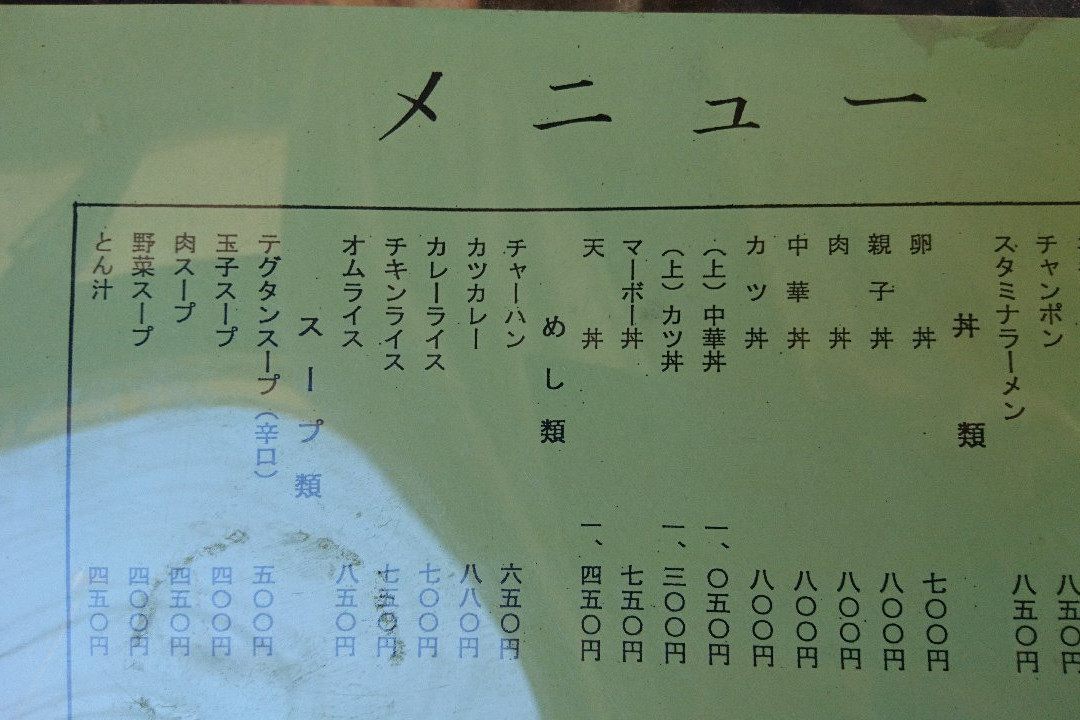 メニュー
チャンポン 八五〇円
スタミナラーメン 八五〇円
丼類
卵丼 七〇〇円
親子丼 八〇〇円
肉丼 八〇〇円
中華丼 八〇〇円
カツ丼 八〇〇円
(上)中華丼 一、〇五〇円
(上)カツ丼 一、三〇〇円
マーボー丼 七五〇円
天丼 一、四五〇円
めし類
チャーハン 六五〇円
カツカレー 八八〇円
カレーライス 七〇〇円
チキンライス 七五〇円
オムライス 八五〇円
スープ類
テグタンスープ(辛口) 五〇〇円
玉子スープ 四〇〇円
肉スープ 四五〇円
野菜スープ 四〇〇円
とん汁 四五〇円